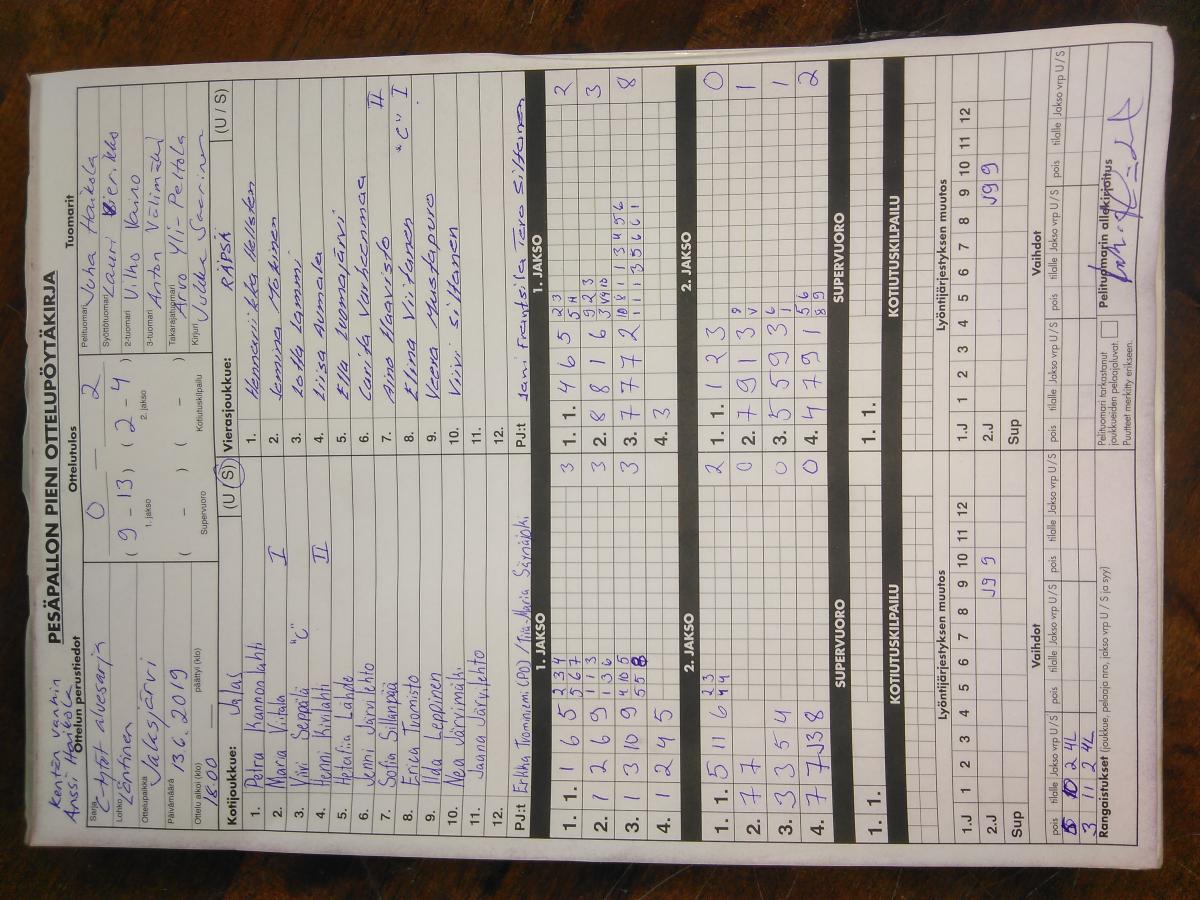 Kentän vanhin
Anssi Haikola
PESÄPALLON PIENI OTTELUPÖYTÄKIRJA
Ottelun perustiedot
Ottelutulos
Tuomarit
Sarja
C-tytöt aluesarja
Lohko
Läntinen
Ottelupaikka
Jalasjärvi
Päivämäärä
13.6.2019
Ottelu alkoi (klo)
18.00
päättyi (klo)
0 — 2
( 9 - 13 ) ( 2 - 4 )
1. jakso 2. jakso
( - ) ( - )
Supervuoro Kotiutuskilpailu
Pelituomari Juha Haikola
Syöttötuomari Lauri
2-tuomari Vilho Vainio
3-tuomari Anton Välimäki
Takarajatuomari Arvo Yli-Peltola
Kirjuri Jukka Saarinen
Kotijoukkue: Jalas (U / S)
1. Petra Kannonlahti
2. Maria Viitala I
3. Viivi Seppälä "C"
4. Henni Kivilahti II
5. Hetaliia Lähde
6. Jenni Järvilehto
7. Sofia Sillanpää
8. Erica Tuomisto
9. Iida Leppinen
10. Nea Järvimäki
11. Jaana Järvilehto
12.
PJ:t Erkka Tuomiemi (PD) / Tiia-Maria
Vierasjoukkue: RÄPSÄ (U / S)
1. Hennariikka
2. Jemina Mäkinen
3. Lotta Lammi
4. Liisa Aumala
5. Ella Luomajärvi
6. Carita Varheenmaa
7. Aino Haavisto II
8. Elina Viitanen "C" I
9. Veera Mustapuro
10. Viivi Siltanen
11.
12.
PJ:t Jani Frantsila Tero Siltanen
1. JAKSO
1. 1. 1 6 5 2 3 4 3
5 6 7
2. 1 2 6 9 1 1 3 3
1 3 6
3. 1 3 10 9 4 10 5 3
5 5 8
4. 1 2 4 5
2. JAKSO
1. 1. 5 11 6 2 3 2
4 4
2. 7 7 0
3. 3 3 5 4 0
4. 7 7 J3 8 0
SUPERVUORO
1. 1.
KOTIUTUSKILPAILU
1. JAKSO
1. 1. 4 6 5 2 3 2
5 H
2. 8 8 1 6 9 2 3 3
3 V9 10
3. 7 7 7 2 10 8 1 1 3 4 5 6 8
1 1 1 3 5 6 6 1
4. 3
2. JAKSO
1. 1. 1 2 3 0
2. 7 9 1 3 9 1
V
3. 5 5 9 3 6 1
1
4. 4 7 9 1 5 6 2
8 9
SUPERVUORO
1. 1.
KOTIUTUSKILPAILU
Lyöntijärjestyksen muutos
1.J 1 2 3 4 5 6 7 8 9 10 11 12
2.J J9 9
Sup
Lyöntijärjestyksen muutos
1.J 1 2 3 4 5 6 7 8 9 10 11 12
2.J J9 9
Sup
Vaihdot
pois tilalle Jakso vrp U/S pois tilalle Jakso vrp U/S pois tilalle Jakso vrp U/S
10 2 4L
3 11 2 4L
Vaihdot
pois tilalle Jakso vrp U/S pois tilalle Jakso vrp U/S pois tilalle Jakso vrp U/S
Rangaistukset (joukkue, pelaaja nro, jakso vrp U / S ja syy)
Pelituomari tarkastanut
joukkueiden pelaajaluvat.
Puutteet merkitty erikseen.
Pelituomarin allekirjoitus